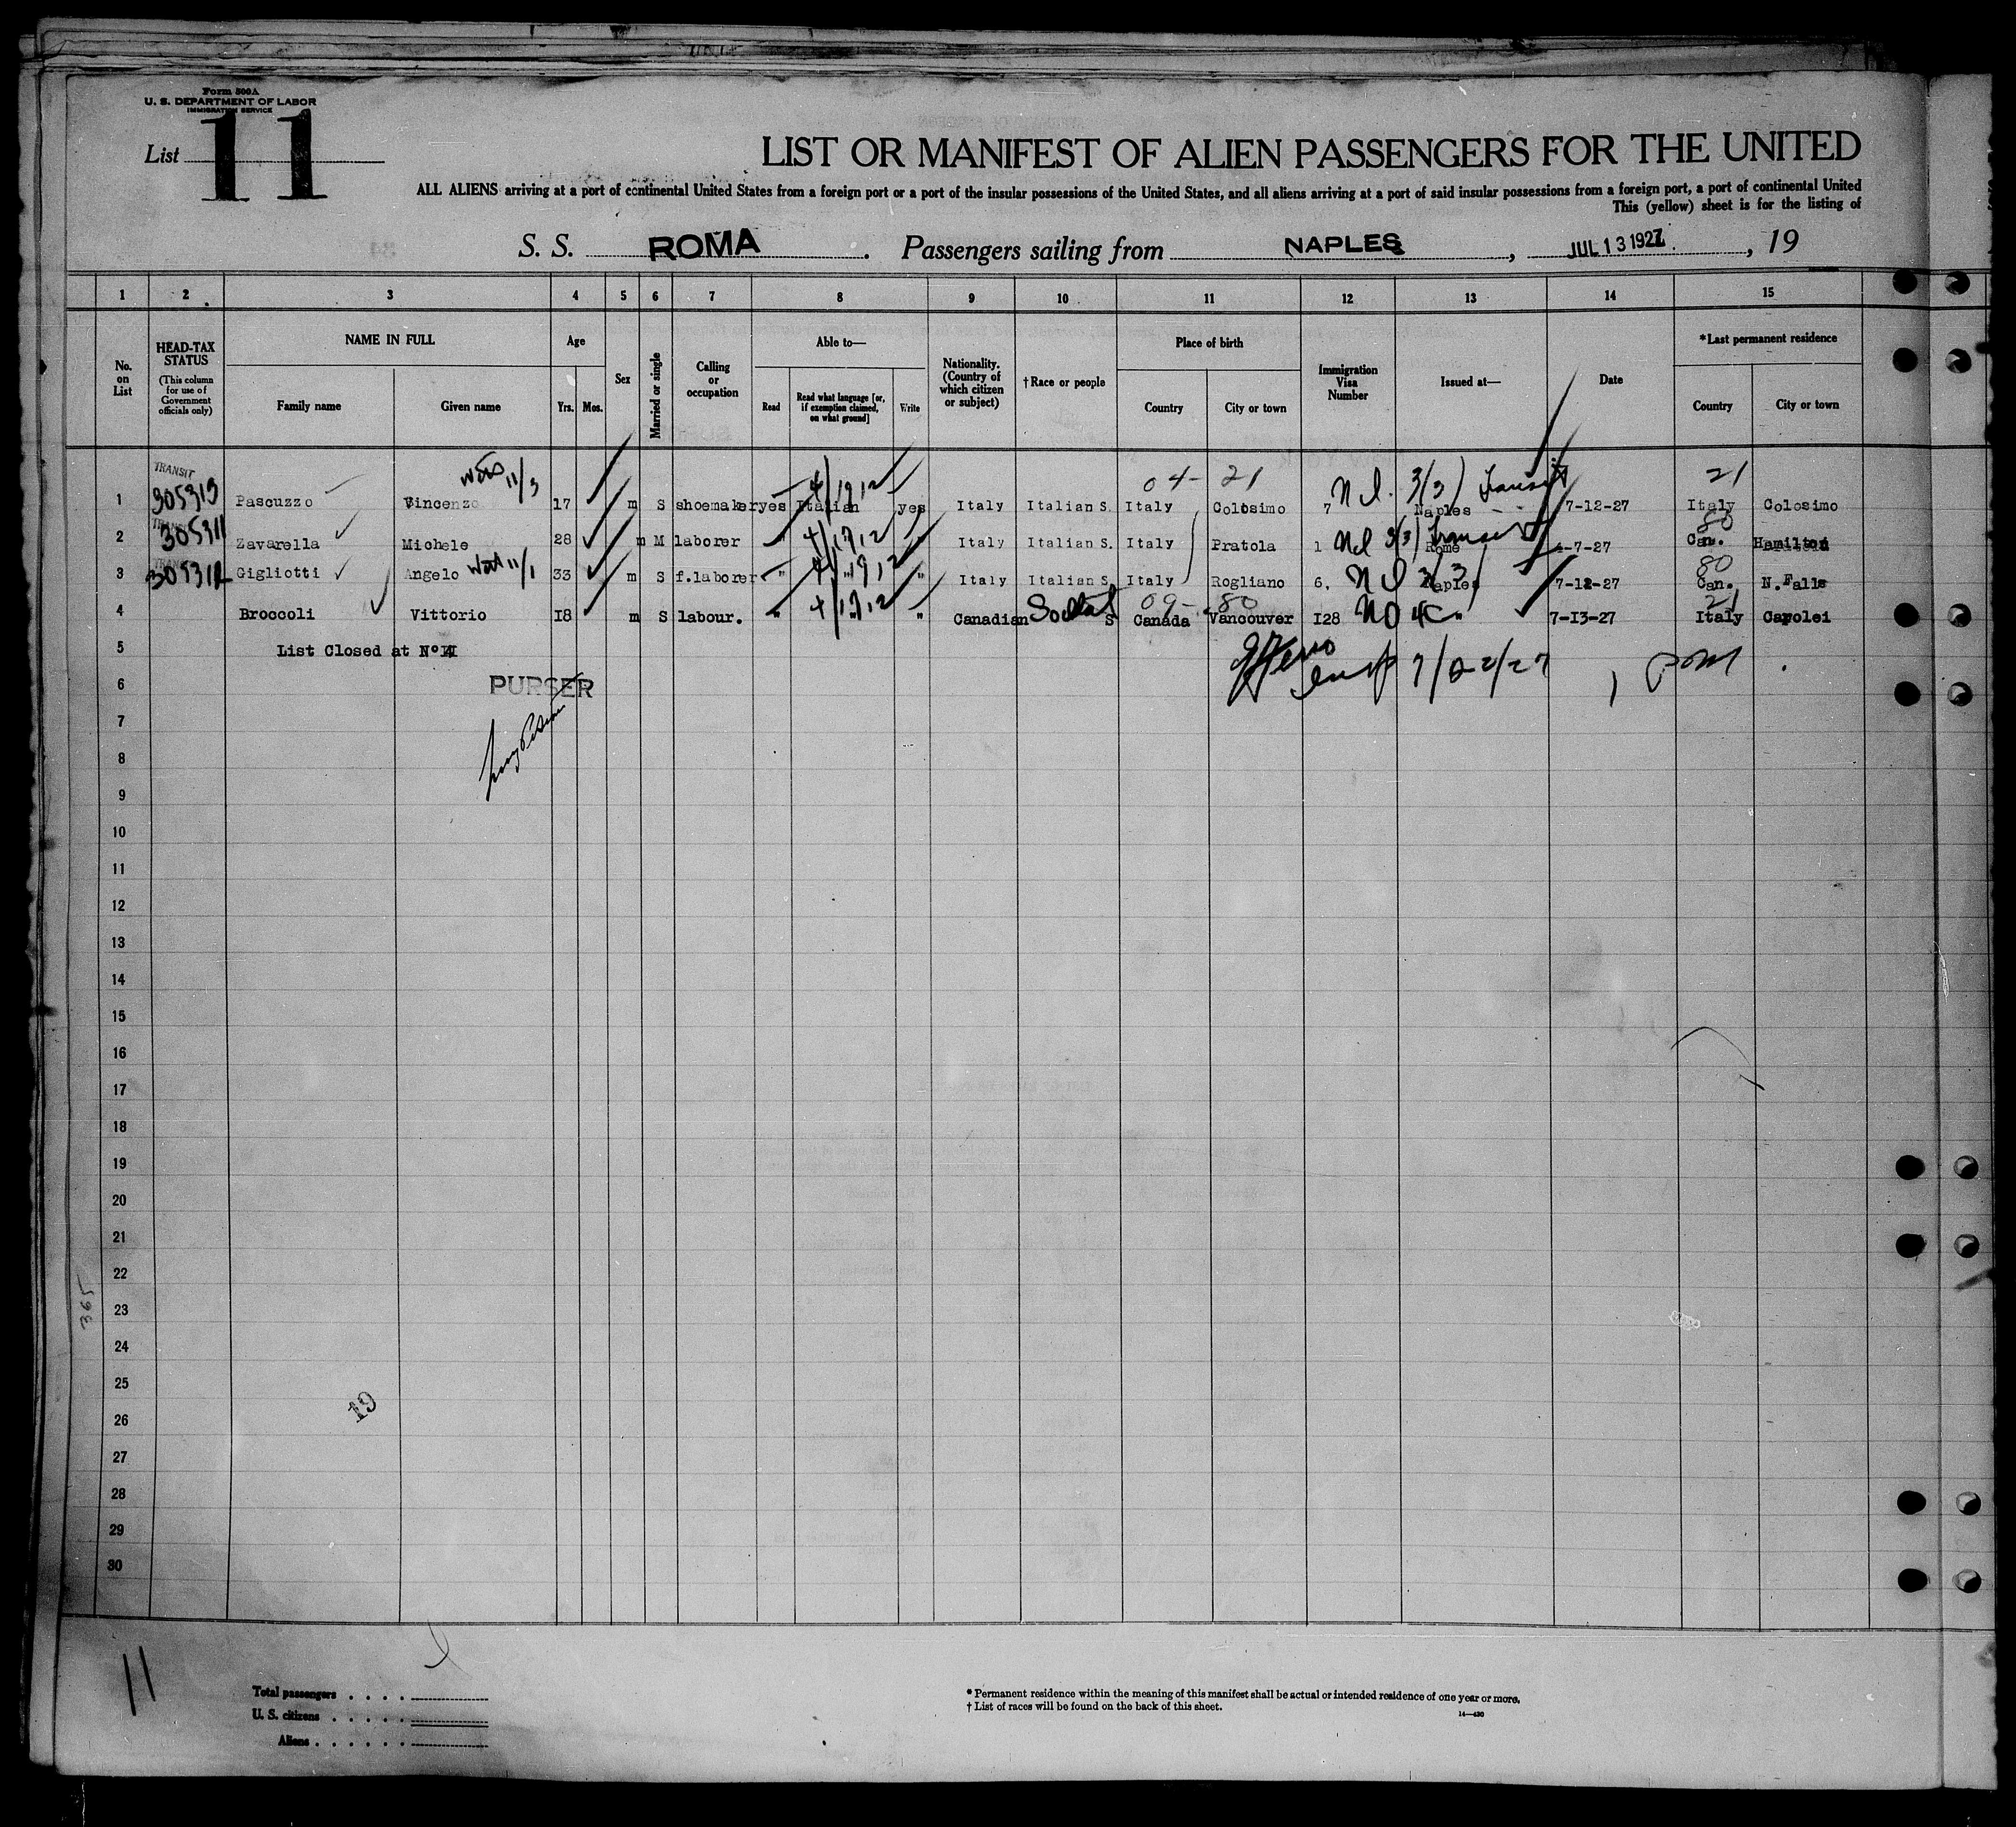 Form 500A
U. S. DEPARTMENT OF LABOR
IMMIGRATION SERVICE
List 11
LIST OR MANIFEST OF ALIEN PASSENGERS FOR THE UNITED
ALL ALIENS arriving at a port of continental United States from a foreign port or a port of the insular possessions of the United States, and all aliens arriving at a port of said insular possessions from a foreign port, a port of continental United
This (yellow) sheet is for the listing of
S. S. ROMA. Passengers sailing from NAPLES, JUL 13 1927, 19
1 2 3 4 5 6 7 8 9 10 11 12 13 14 15
No. on List
HEAD-TAX STATUS
(This column for use of Government officials only)
NAME IN FULL
Family name
Given name
Age
Yrs. Mos.
Sex
Married or single
Calling or occupation
Able to—
Read
Read what language [or, if exemption claimed, on what ground]
Write
Nationality. (Country of which citizen or subject)
†Race or people
Place of birth
Country
City or town
Immigration Visa Number
Issued at—
Date
*Last permanent residence
Country
City or town
TRANSIT 11/3 04- 21 3/3 Transit 21
1 305313 Pascuzzo Vincenzo 17 m S shoemaker yes Italian yes Italy Italian S. Italy Colosimo 7 Naples 7-12-27 Italy Colosimo
TRANSIT 3/3 Transit 80
2 305311 Zavarella Michele 28 m M laborer " Italy Italian S. Italy Pratola 1 Rome -7-27 Can. Hamilton
11/1 3/3 80
3 305312 Gigliotti Angelo 33 m S f.laborer " " " Italy Italian S. Italy Rogliano 6. Naples 7-12-27 Can. N.Falls
09- 80 21
4 Broccoli Vittorio 18 m S labour. " " " Canadian S Canada Vancouver 128 NO 4C " 7-13-27 Italy Carolei
5 List Closed at No 4
7/22/27
6 PURSER
7
8
9
10
11
12
13
14
15
16
17
18
19
20
21
22
23
24
25
26
27
28
29
30
365
19
11
Total passengers . . . .
U. S. citizens . . . . .
Aliens . . . . . .
* Permanent residence within the meaning of this manifest shall be actual or intended residence of one year or more.
† List of races will be found on the back of this sheet.
14—430